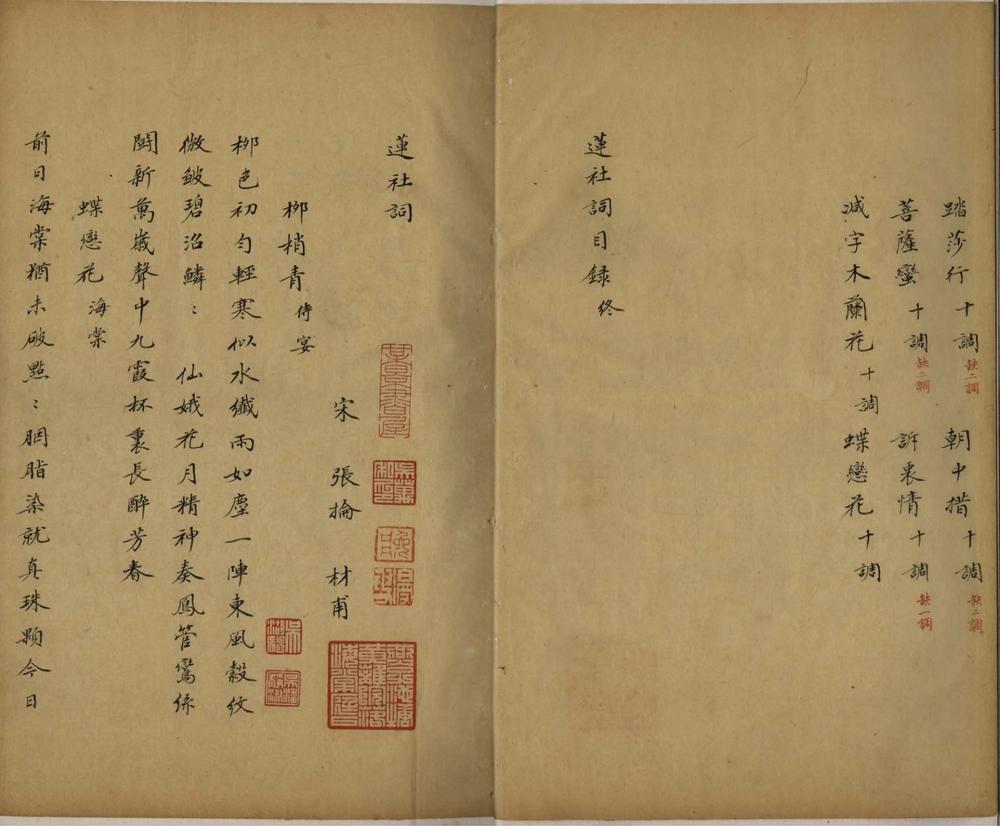 踏莎行十調缺二調 朝中措十調缺二調
菩薩蠻十調缺二調 訴衷情十調缺一調
減字木蘭花十調 蝶戀花十調
蓮社詞目録終
蓮社詞
宋 張掄 材甫
柳梢青侍宴
柳色初勻輕寒似水纖雨如塵一陣東風縠紋
微皴碧沼鱗：　仙娥花月精神奏鳳管鸞絲
鬪新萬歲聲中九霞杯裏長醉芳春
蝶戀花海棠
前日海棠猶未破點：胭脂染就真珠顆今日